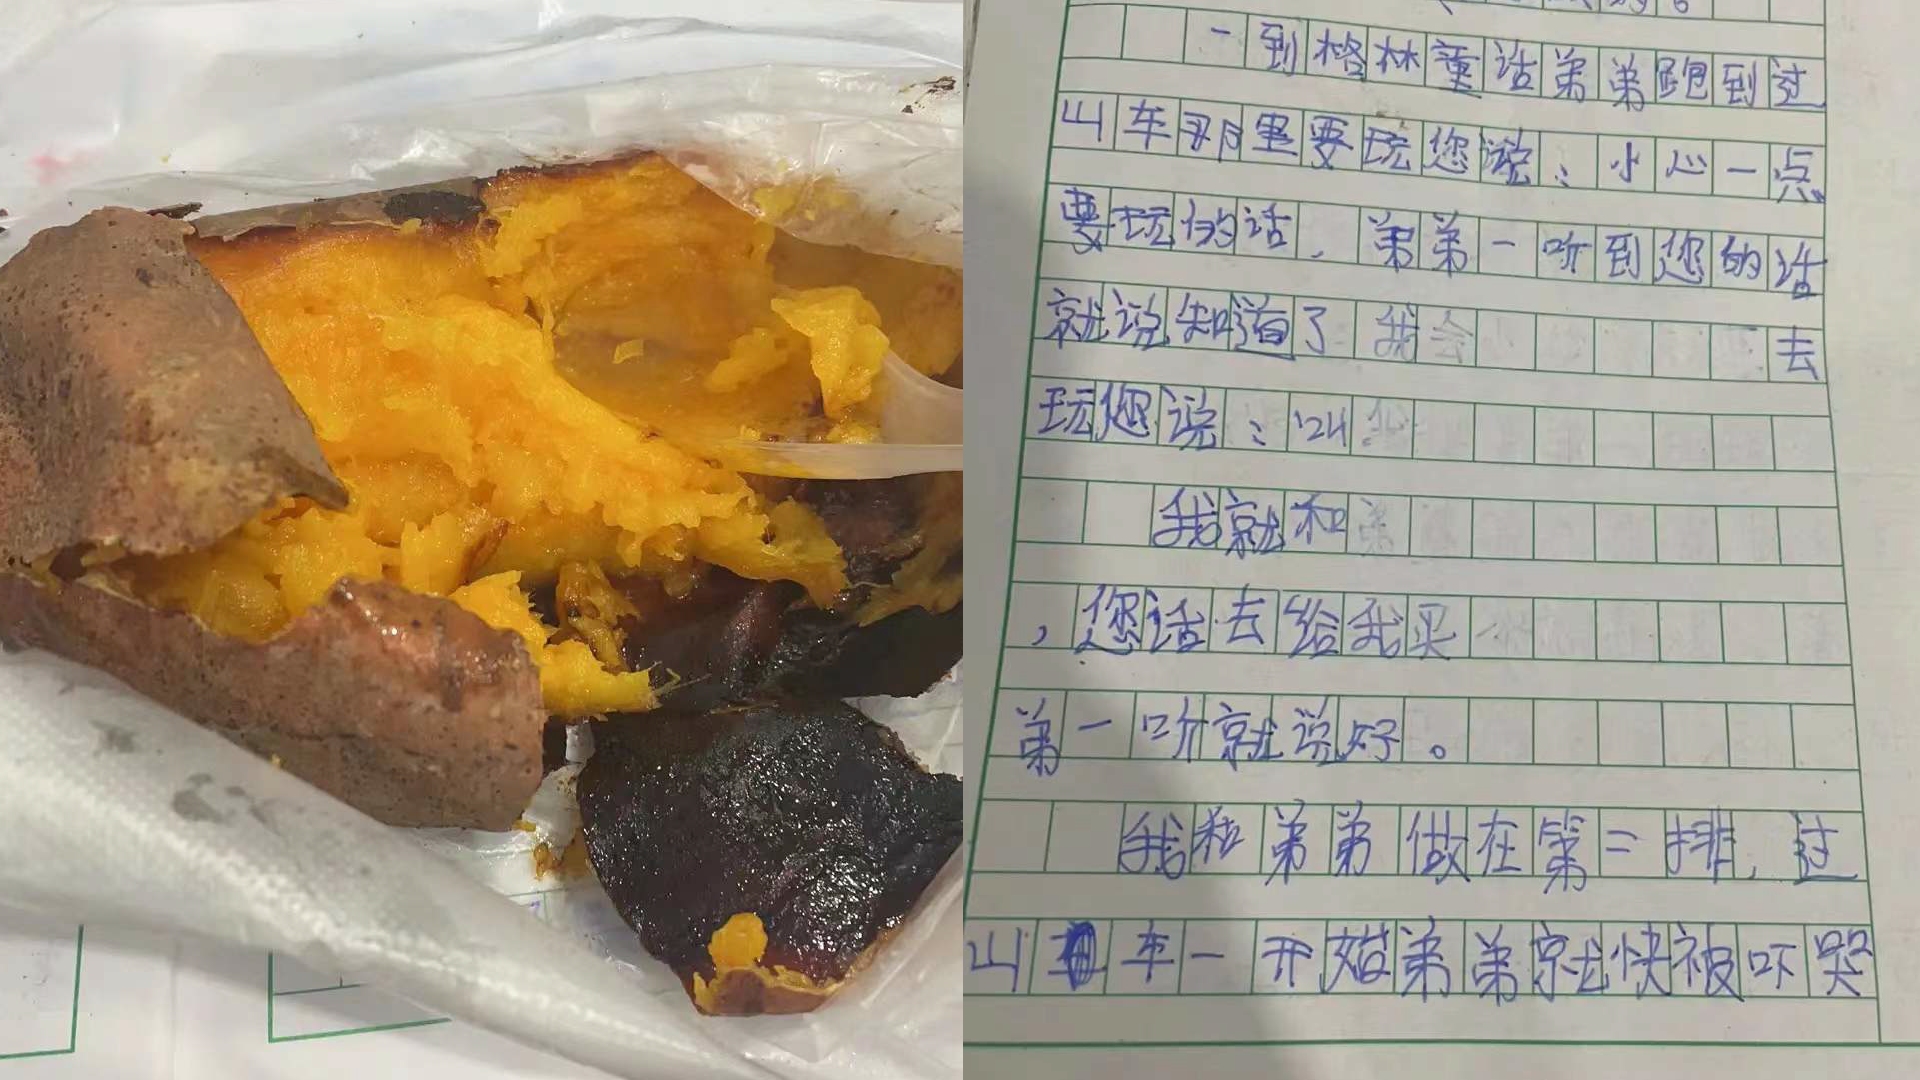 一到格林童话弟弟跑到过
山车那里要玩您说：小心一点
要玩的话，弟弟一听到您的话
就说知道了我会 去
玩您说：
我就和弟
，您话去给我买
弟一听就说好。
我和弟弟做在第二排，过
山车一开始弟弟就快被吓哭